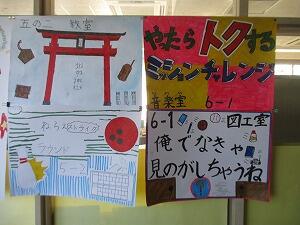 五の二 教室
ねらえ!ストライク
ラウンド
5-2
やたらトクする
ミッションチャレンジ
音楽室 6-1
6-1 図工室
俺でなきゃ
見のがしちゃうね